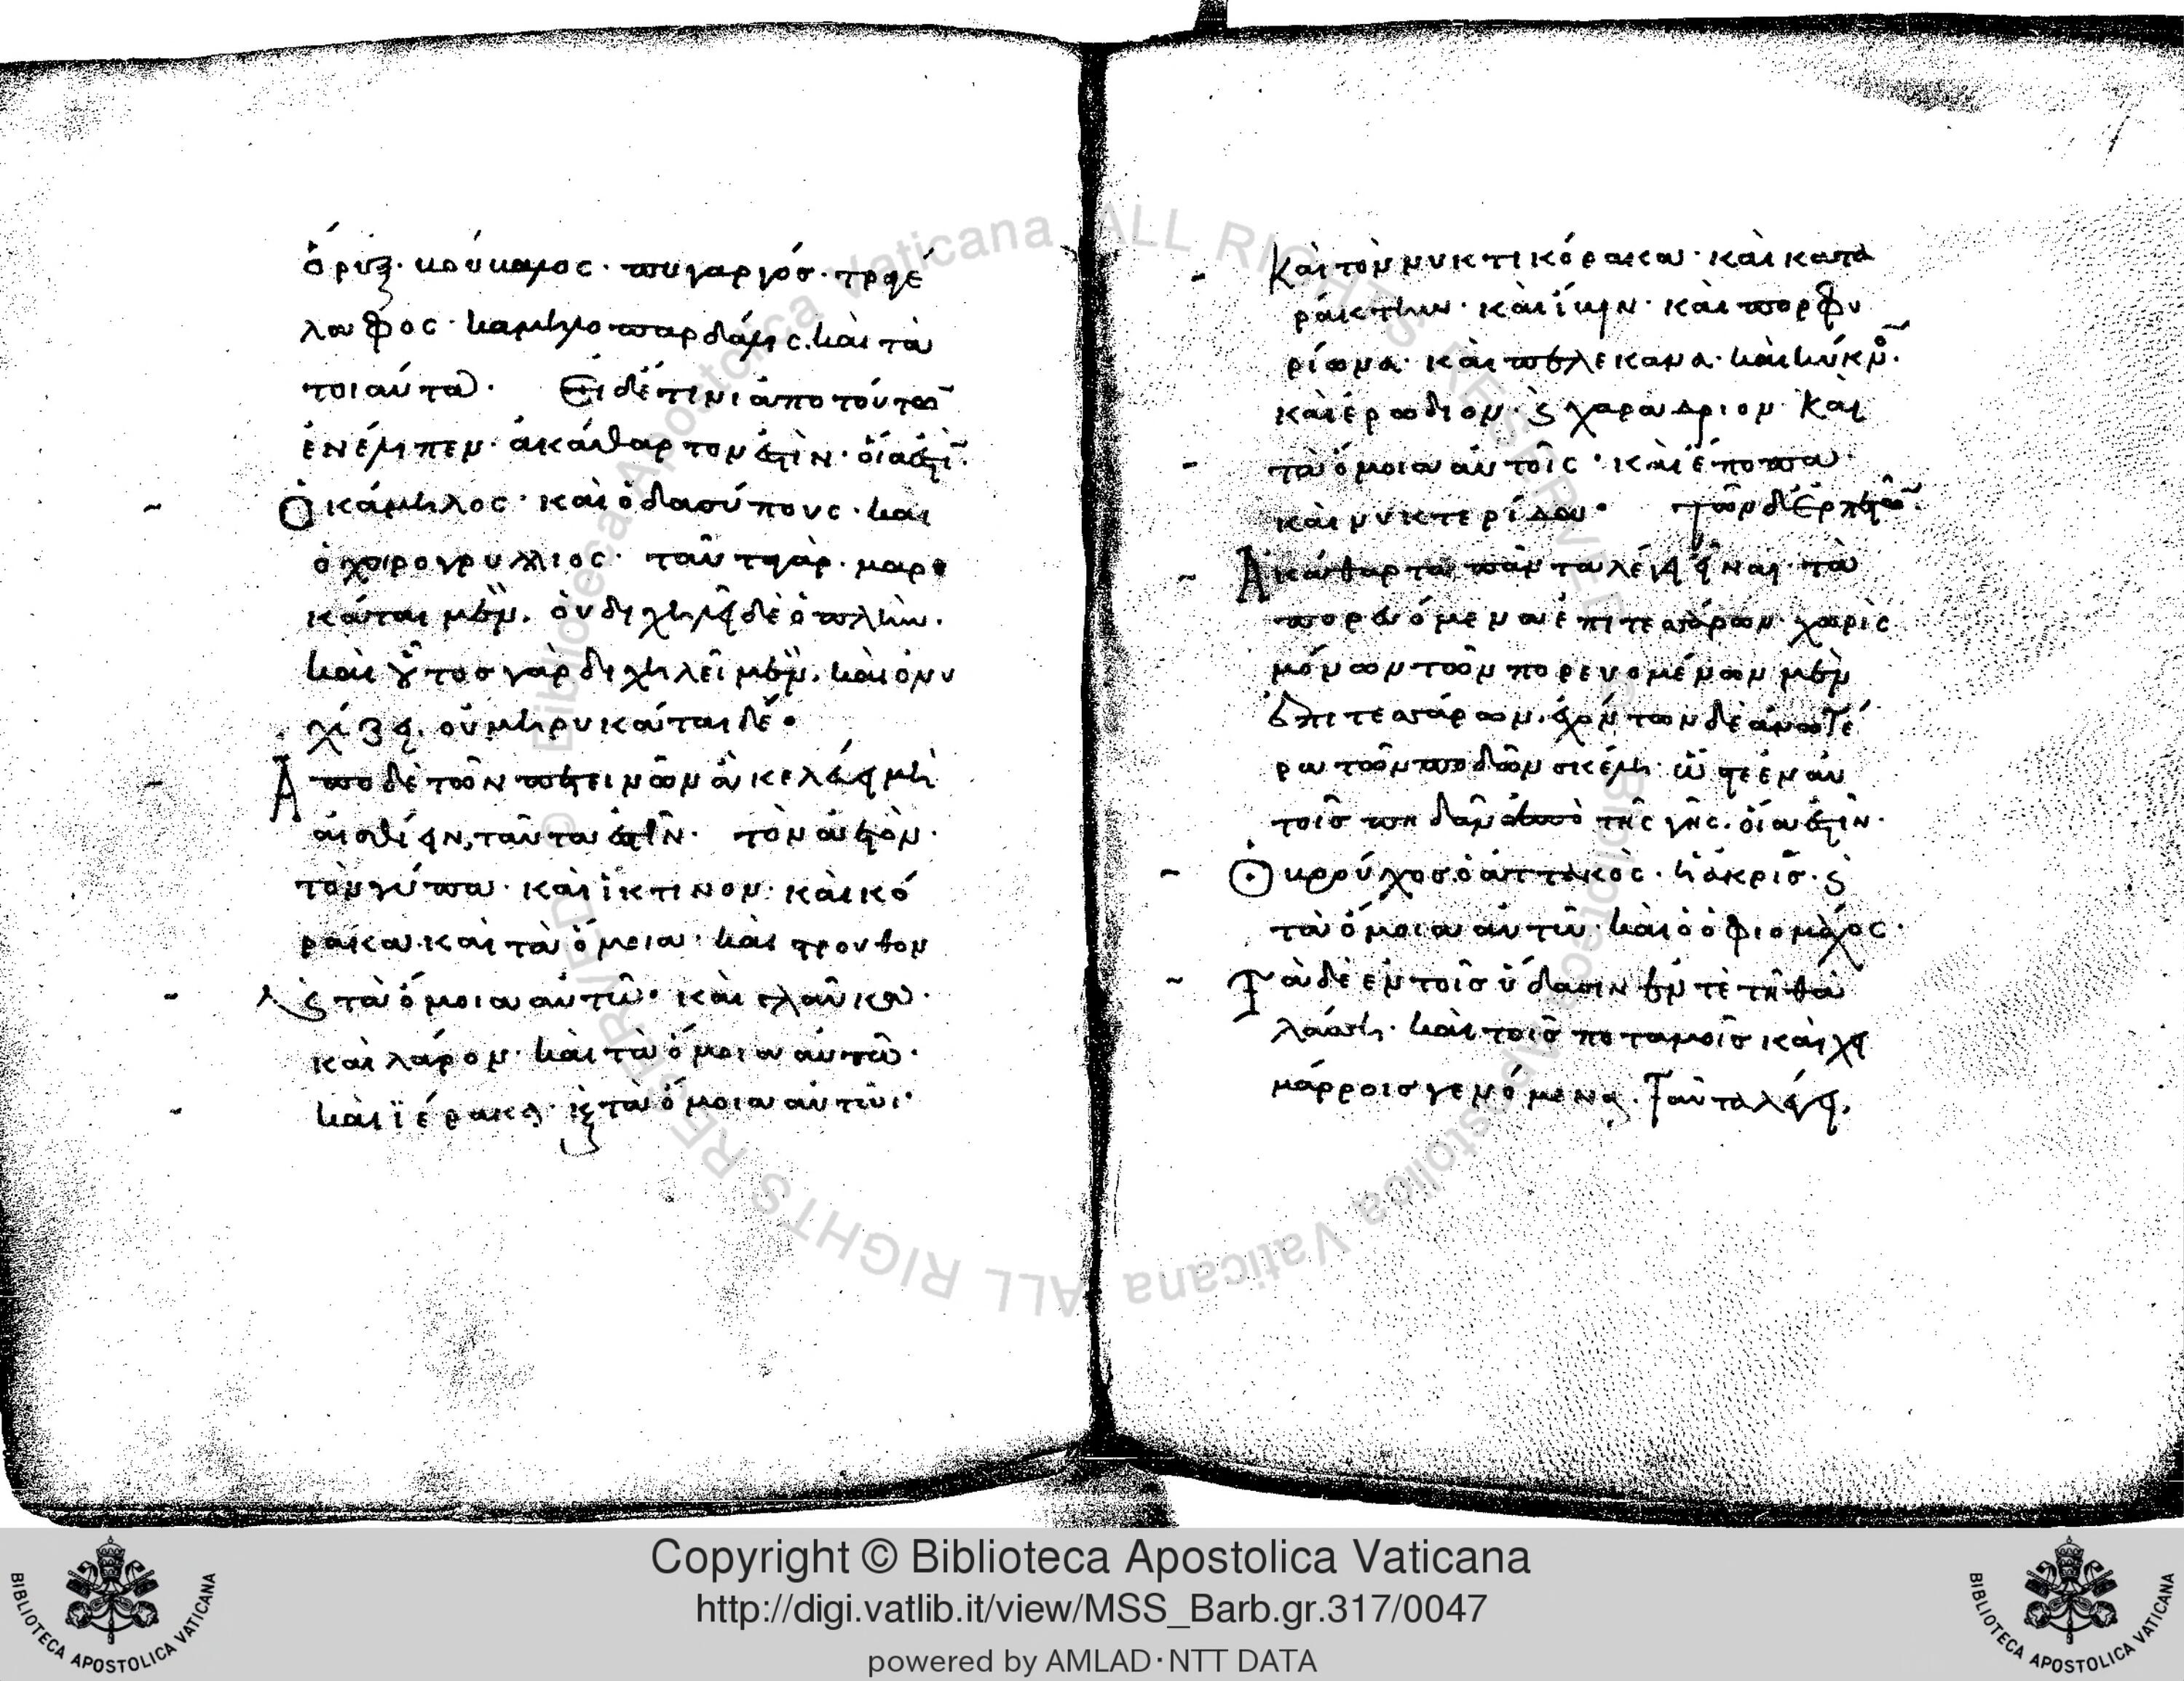 ὄρυξ· κούκαμος· πυγαργός· τραγέ
λαφος· καμηλοπάρδαλις· καὶ τὰ
τοιαῦτα· Εἰ δέ τινι ἀπὸ τούτων
ἐνέλιπεν· ἀκάθαρτον ἐστὶν· οἷά ἐστι·
Ὁ κάμηλος· καὶ ὁ δασύπους· καὶ
ὁ χοιρογρύλλιος· ταῦτα γὰρ· μαρυ
κᾶται μὲν. οὐ διχηλεῖ δὲ ὁπλὴν.
καὶ ὗς τοσ γὰρ διχηλεῖ μὲν. καὶ ὀνυ
χίζει. οὐ μηρυκᾶται δέ·
Ἀπὸ δὲ τῶν πετεινῶν ἃ κελεύει μὴ
αἰσθίειν, ταῦτα ἐστὶν· τὸν ἀετὸν·
τὸν γύπα· καὶ ἴκτινον· καὶ κό
ρακα· καὶ τὰ ὅμοια· καὶ στρουθον
καὶ τὰ ὅμοια αὐτῶ· καὶ γλαῦκα·
καὶ λάρον· καὶ τὰ ὅμοια αὐτῶ·
καὶ ἱέρακα· καὶ τὰ ὅμοια αὐτῶι·
Καὶ τὸν νυκτικόρακα· καὶ κατα
ράκτην· καὶ ἴβιν· καὶ πορφυ
ρίωνα· καὶ πελεκανα· καὶ κύκνον·
καὶ ἐρωδιὸν· καὶ χαραδριον· Καὶ
τὰ ὅμοια αὐτοῖς· καὶ ἔποπα·
καὶ νυκτερίδα· Τῶν δ' ἑρπετῶν·
Ἀκάθαρτα πάντα λέγει εἶναι· τὰ
πορευόμενα ἐπὶ τεσσάρων· χωρὶς
μόνων τῶν πορευομένων μὲν
ἐπὶ τεσσάρων. ἐχόντων δὲ ἀνωτέ
ρω τῶν ποδῶν σκέλη· ὥστε ἐν αὐ
τοῖς πηδᾶν ἀπὸ τῆς γῆς. οἷά ἐστὶν·
Ὁ βροῦχος ὁ ἀττακὸς· ἡ ἀκρὶς· καὶ
τὰ ὅμοια αὐτῶ· καὶ ὁ ὀφιομάχος·
Τὰ δὲ ἐν τοῖς ὕδασιν ἔν τε τῇ θα
λάσση· καὶ τοῖς ποταμοῖς καὶ χει
μάρροις γενόμενα. Ταῦτα λέγει.
Copyright © Biblioteca Apostolica Vaticana
http://digi.vatlib.it/view/MSS_Barb.gr.317/0047
powered by AMLAD·NTT DATA